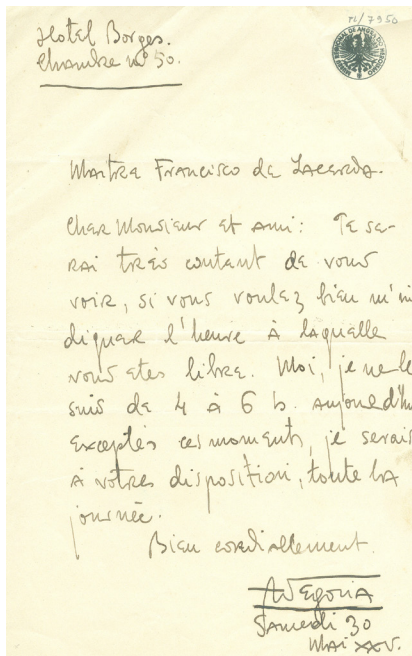 M/7950
Hotel Borges.
Chambre nº 50.
Maitre Francisco de Lacerda.
Cher Monsieur et ami: Je se-
rai très contant de vous
voir, si vous voulez bien m'in
diquer l'heure à laquelle
vous etes libre. Moi, je ne le
suis de 4 à 6 h. aujourd'hu
exceptés ces moments, je serais
à votres disposition, toute la
journée.
Bien cordiallement.
Samedi 30
Mai XXV.